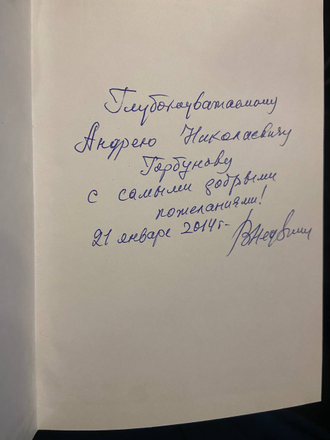 Глубокоуважаемому
Андрею Николаевичу
Горбунову
с самыми добрыми
пожеланиями!
21 января 2014 г.